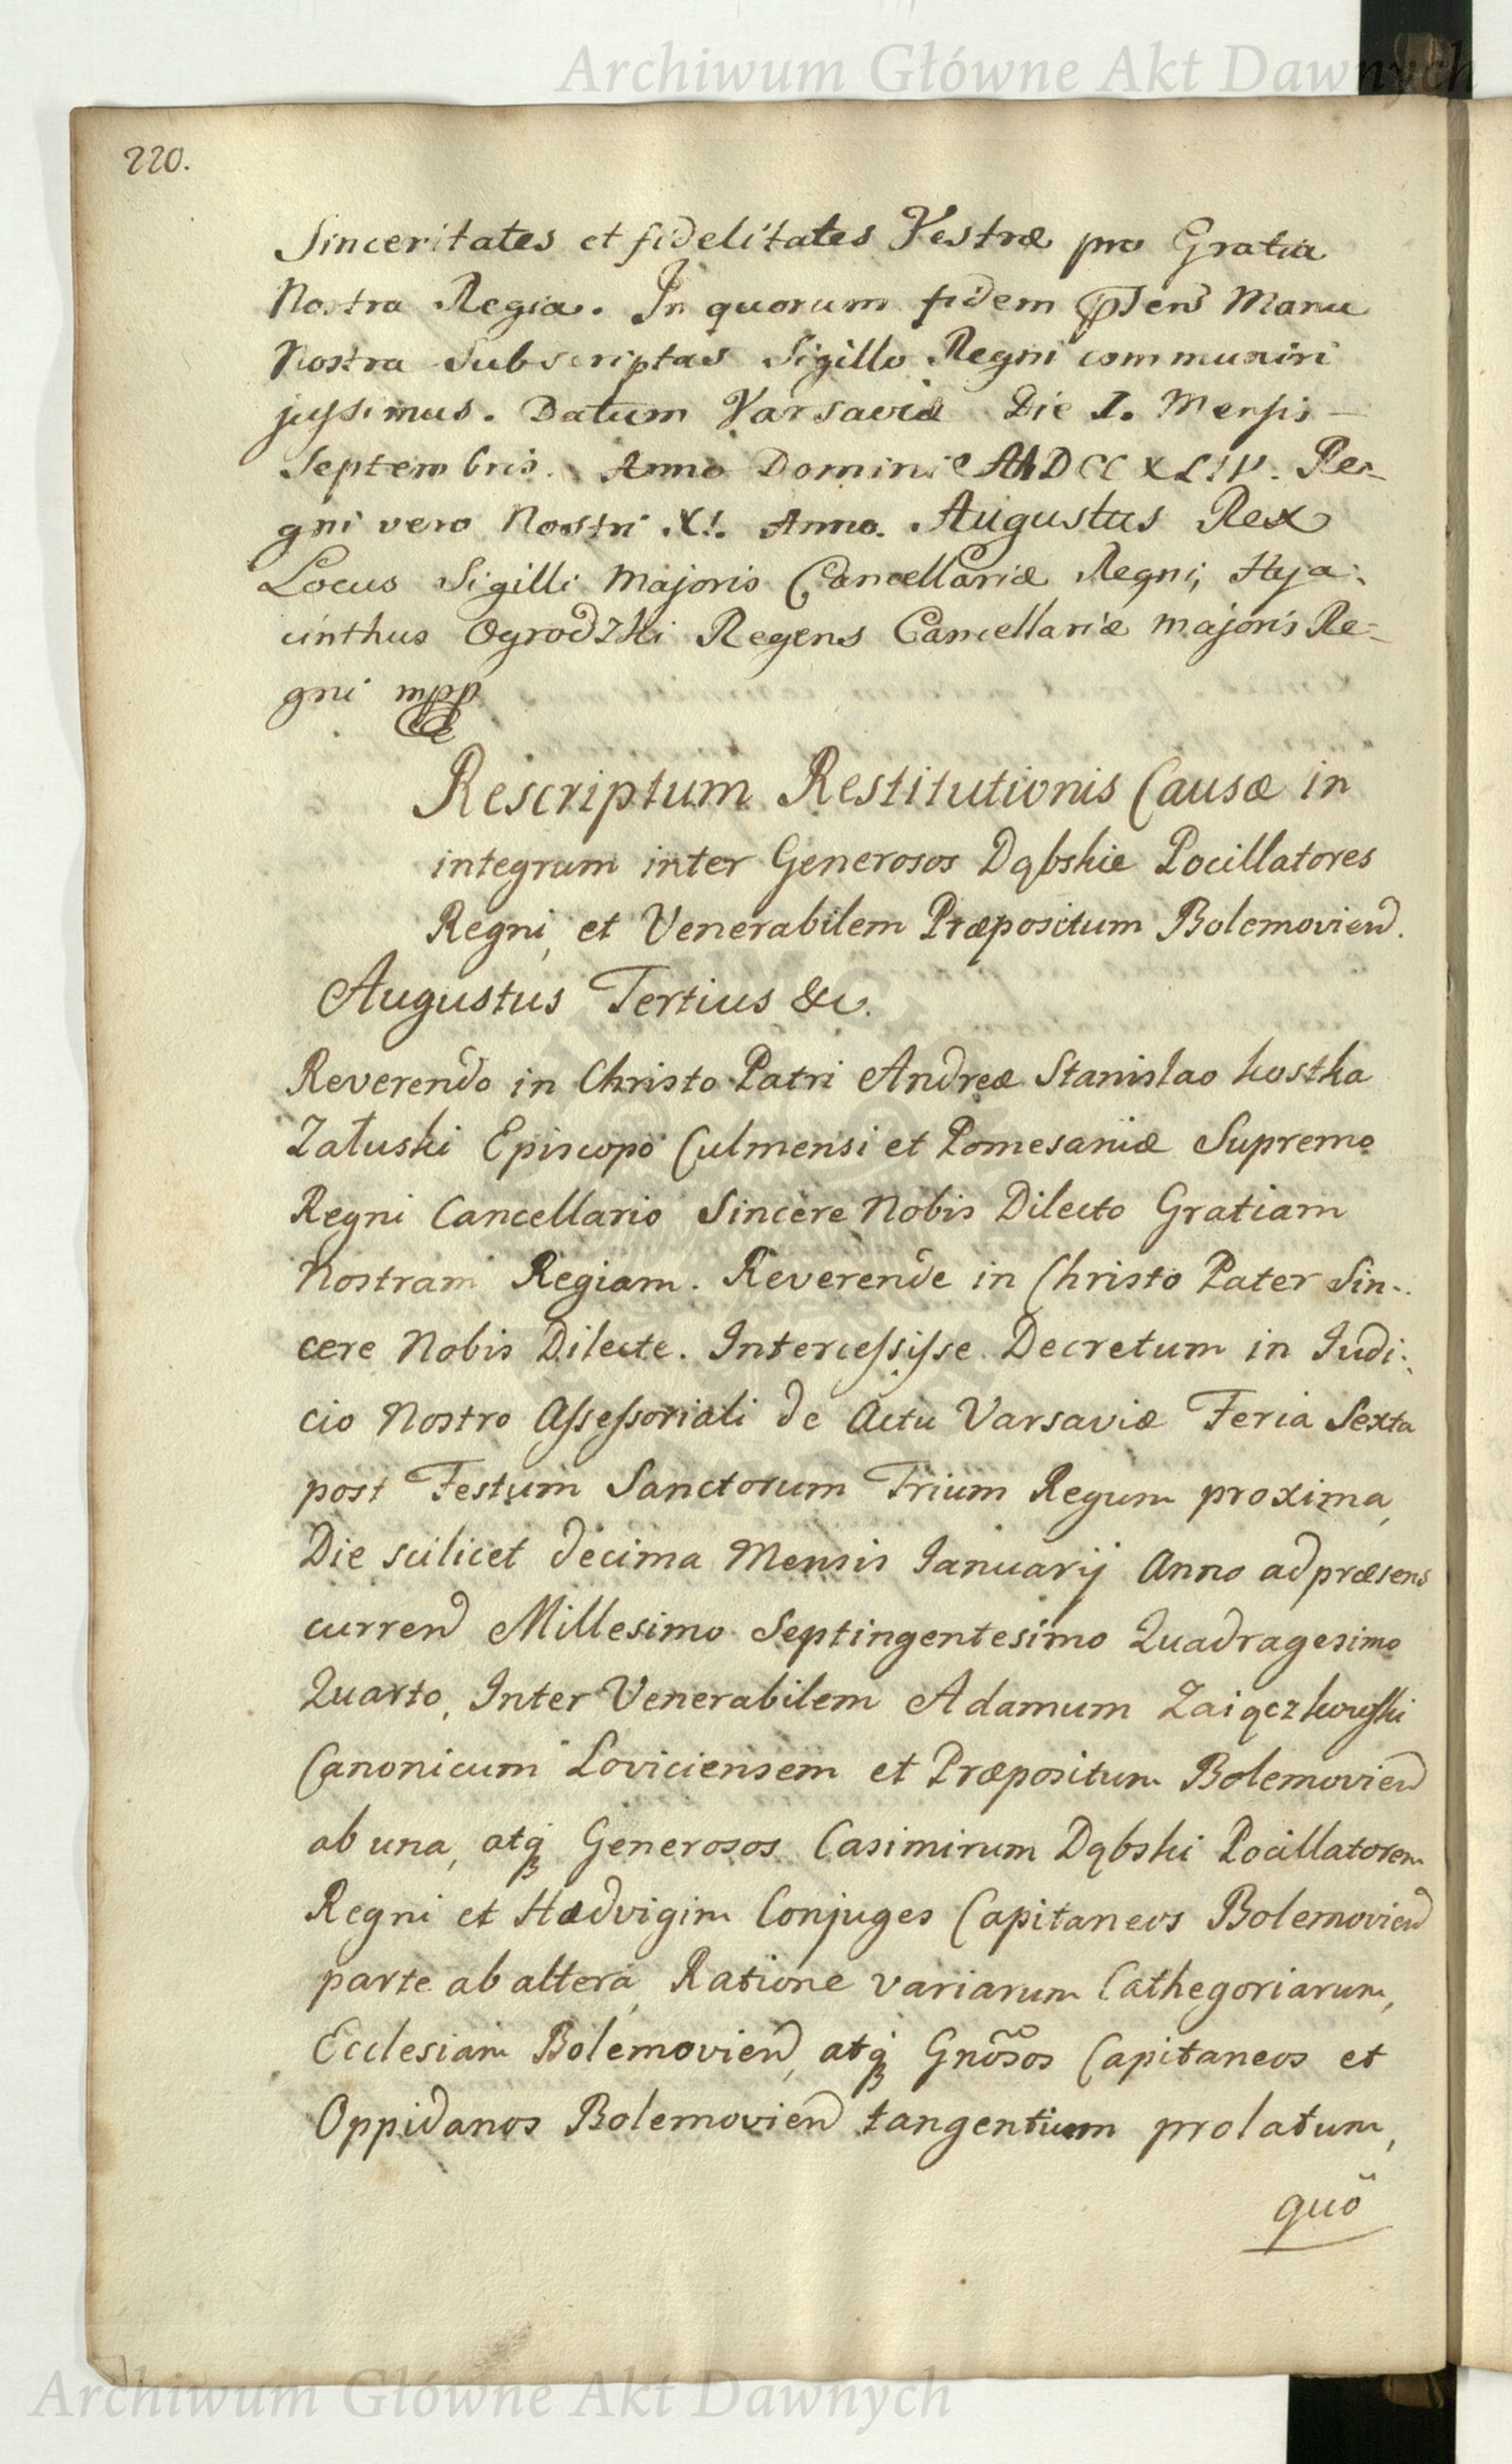 Archiwum Główne Akt Dawnych
220.
Sinceritates et fidelitates Vestræ pro Gratia
Nostra Regia. In quorum fidem pñsens Manu
Nostra Subscriptas Sigillo Regni communiri
jussimus. Datum Varsaviæ Die I. Mensis —
Septembris. Anno Domini MDCCXLIV. Re-
gni vero Nostri XI. Anno. Augustus Rex
Locus Sigilli Majoris Cancellariæ Regni, Hya-
cinthus Ogrodzki Regens Cancellariæ majoris Re-
gni mpp
Rescriptum Restitutionis Causæ in
integrum inter Generosos Dąbskie Pocillatores
Regni, et Venerabilem Præpositum Bolemovien.
Augustus Tertius &c.
Reverendo in Christo Patri Andreæ Stanislao Kostka
Załuski Episcopo Culmensi et Pomesaniæ Supremo
Regni Cancellario Sincere Nobis Dilecto Gratiam
Nostram Regiam. Reverende in Christo Pater Sin-
cere Nobis Dilecte. Intercessisse Decretum in Iudi-
cio Nostro Assessoriali de Actu Varsaviæ Feria Sexta
post Festum Sanctorum Trium Regum proxima,
Die scilicet decima Mensis Ianuarij Anno ad præsens
curren Millesimo Septingentesimo Quadragesimo
Quarto, Inter Venerabilem Adamum Zaiączkowski
Canonicum Loviciensem et Præpositum Bolemovien
ab una, atq Generosos Casimirum Dąbski Pocillatorem
Regni et Hædvigim Conjuges Capitaneos Bolemovien
parte ab altera, Ratione variarum Cathegoriarum,
Ecclesiam Bolemovien, atq Gnõsos Capitaneos et
Oppidanos Bolemovien tangentium prolatum,
quo
Archiwum Główne Akt Dawnych